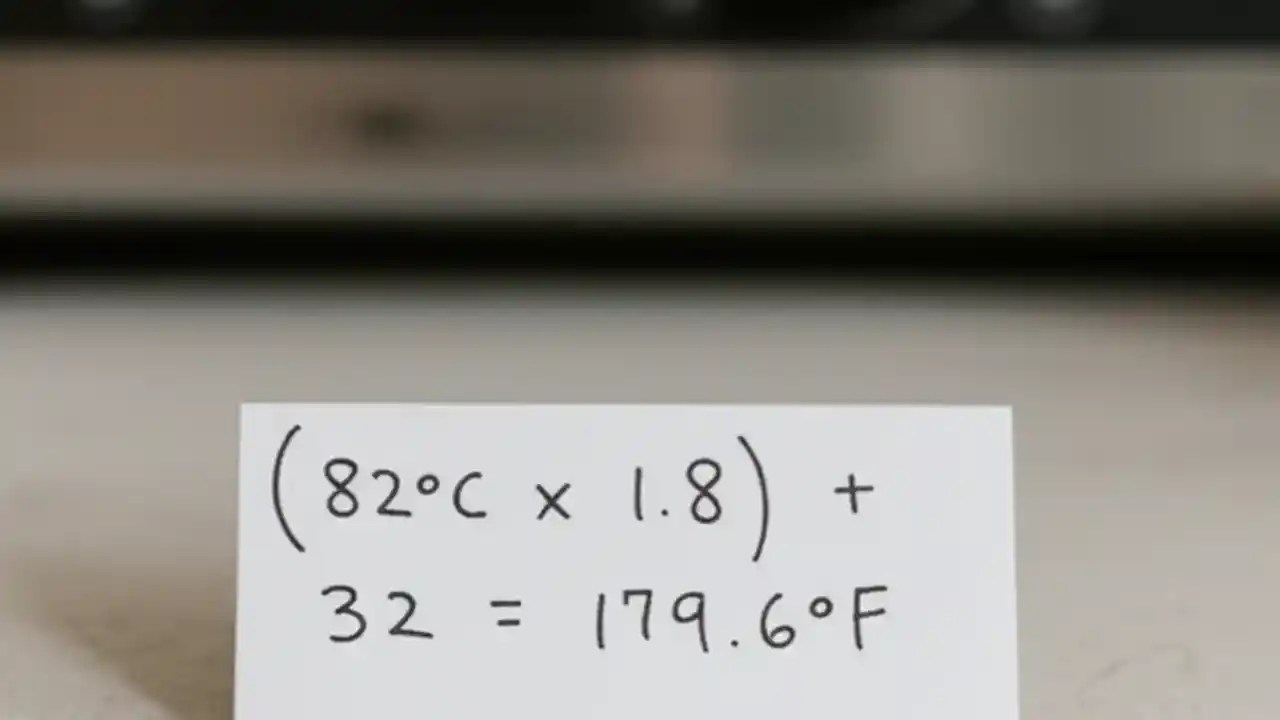 (82°C x 1.8) +
32 = 179.6°F